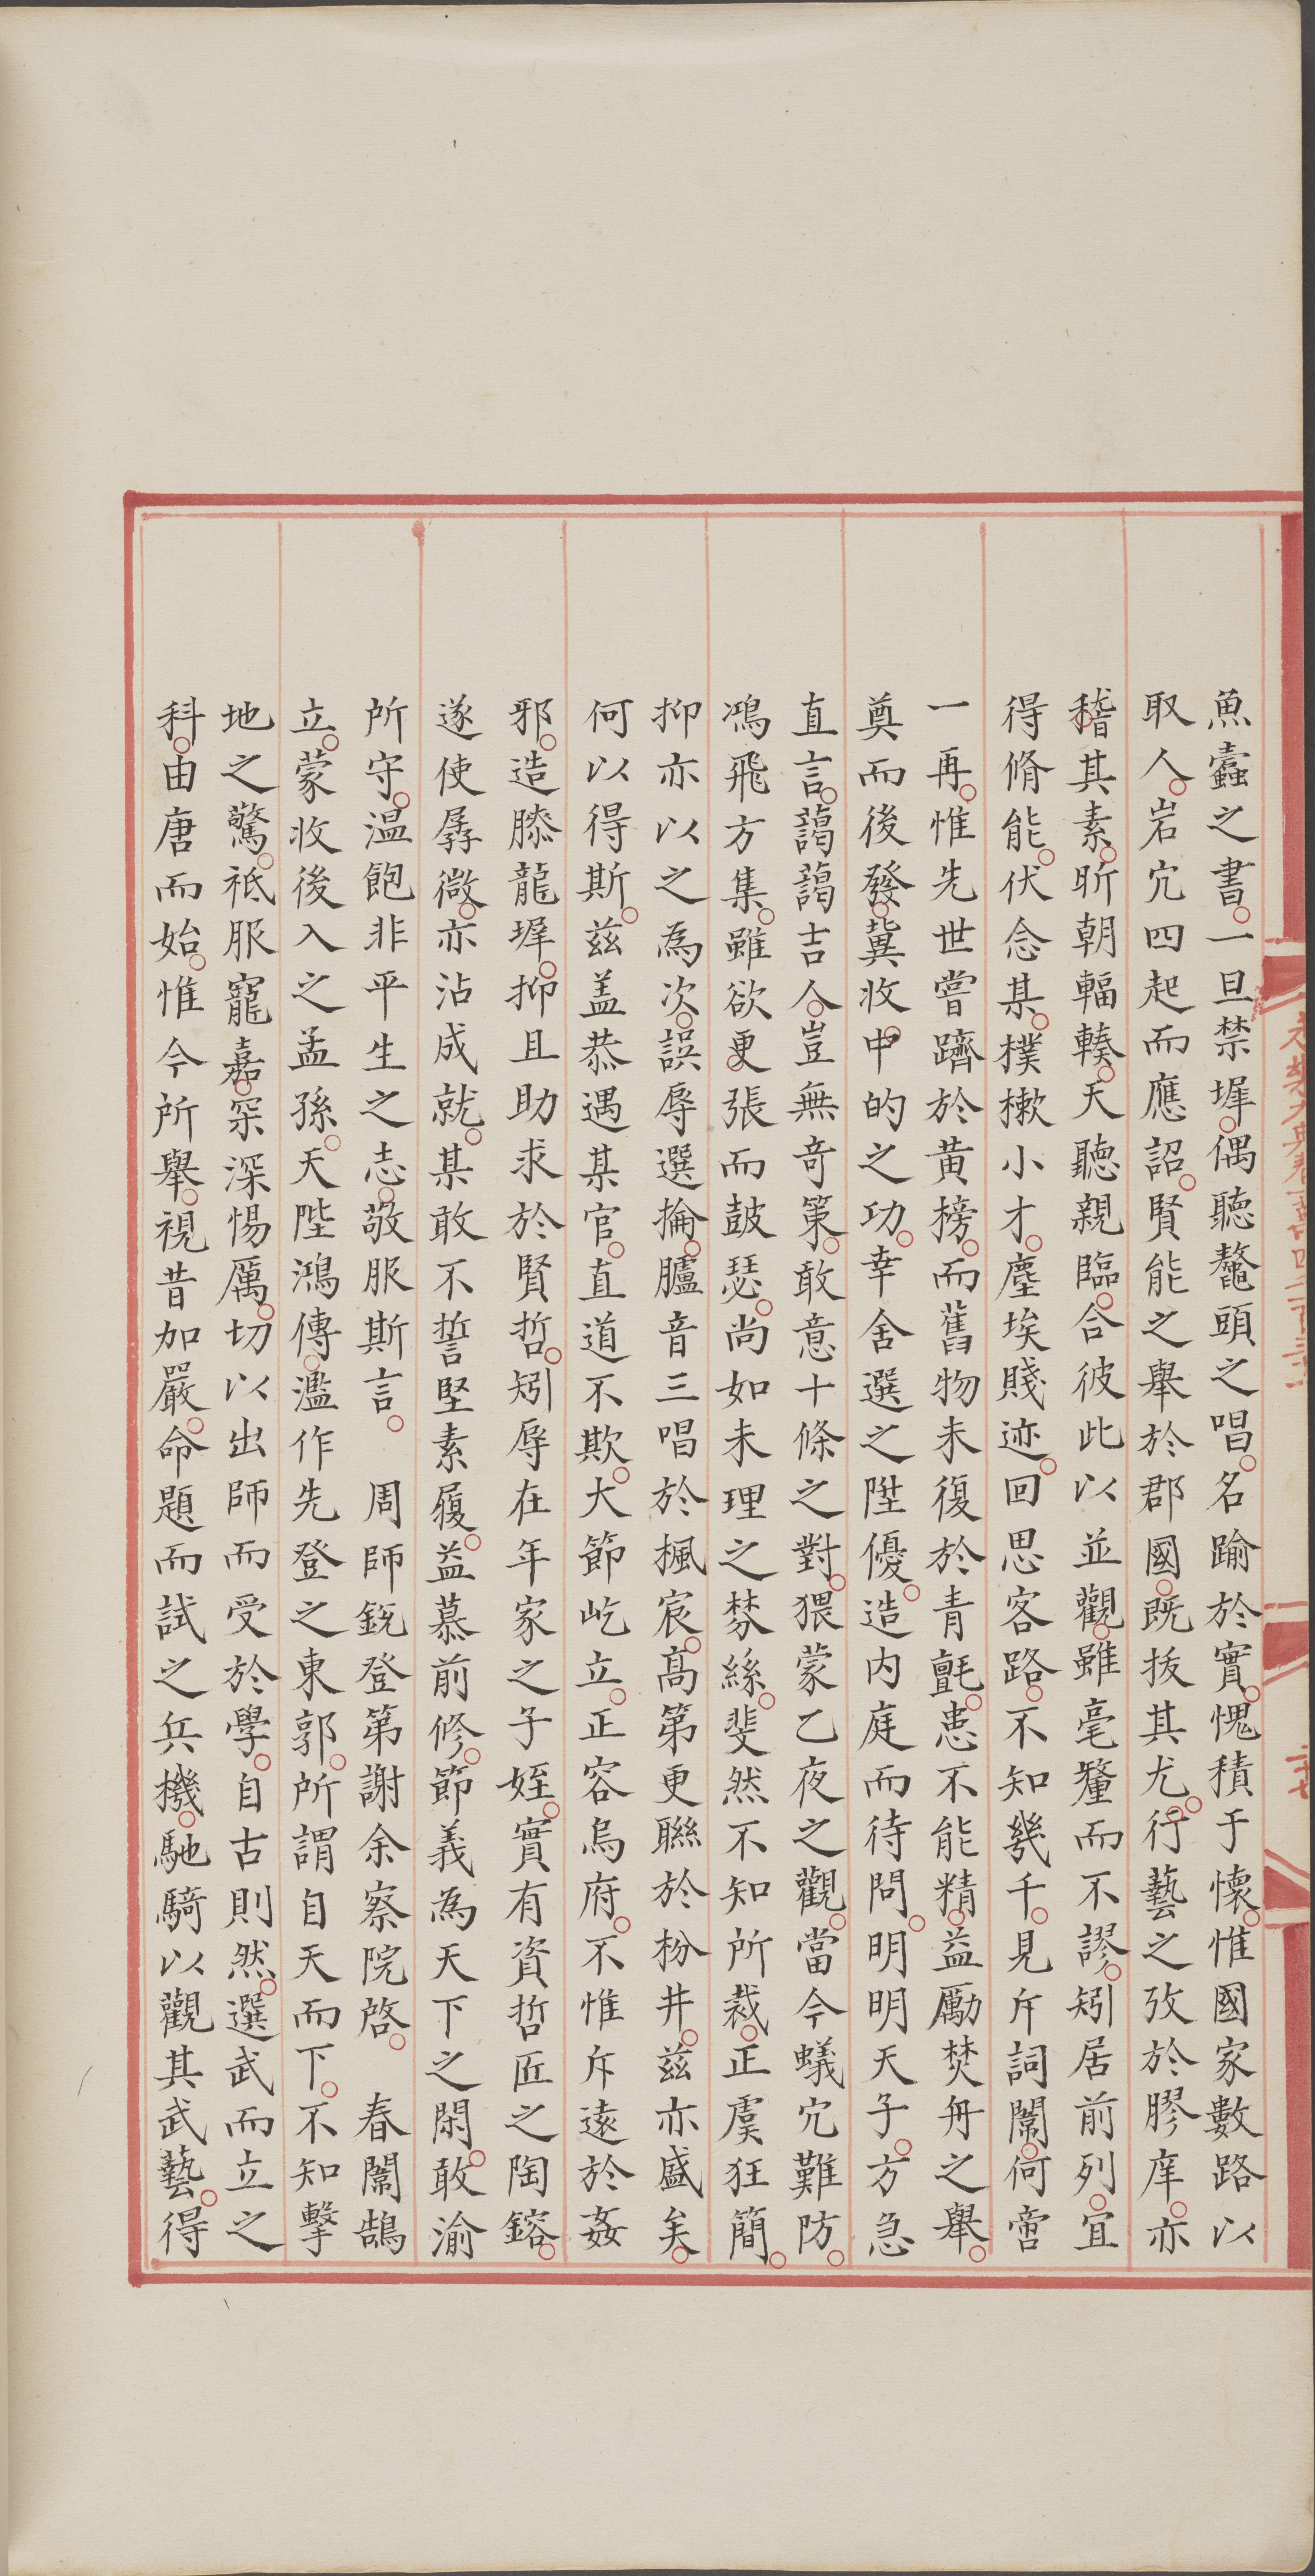 永樂大典卷一萬四千一百三十一
二十七
魚蠧之書一旦禁墀偶聽鼇頭之唱名踰於實愧積于懷惟國家數路以
取人岩穴四起而應詔賢能之舉於郡國既拔其尤行藝之攷於膠庠亦
稽其素昕朝輻輳天聽親臨合彼此以並觀雖毫釐而不謬矧居前列宜
得脩能伏念某樸樕小才塵埃賤迹回思客路不知幾千見斥詞闈何啻
一再惟先世嘗躋於黄榜而舊物未復於青氈患不能精益勵焚舟之舉
奠而後發冀收中的之功幸舍選之陞優造内庭而待問明明天子方急
直言藹藹吉人豈無奇策敢意十條之對猥蒙乙夜之觀當今蟻穴難防
鴻飛方集雖欲更張而鼓瑟尚如未理之棼絲斐然不知所裁正虞狂簡
抑亦以之為次誤辱選掄臚音三唱於楓宸高第更聯於枌井兹亦盛矣
何以得斯兹盖恭遇某官直道不欺大節屹立正容烏府不惟斥逺於姦
邪造膝龍墀抑且助求於賢哲矧辱在年家之子姪實有資哲匠之陶鎔
遂使孱微亦沾成就某敢不誓堅素履益慕前修節義為天下之閑敢渝
所守温飽非平生之志敬服斯言　周師鋭登第謝余察院啓　春闈鵠
立蒙收後入之孟孫天陛鴻傳濫作先登之東郭所謂自天而下不知擊
地之驚祗服寵嘉罙深惕厲切以出師而受於學自古則然選武而立之
科由唐而始惟今所舉視昔加嚴命題而試之兵機馳騎以觀其武藝得